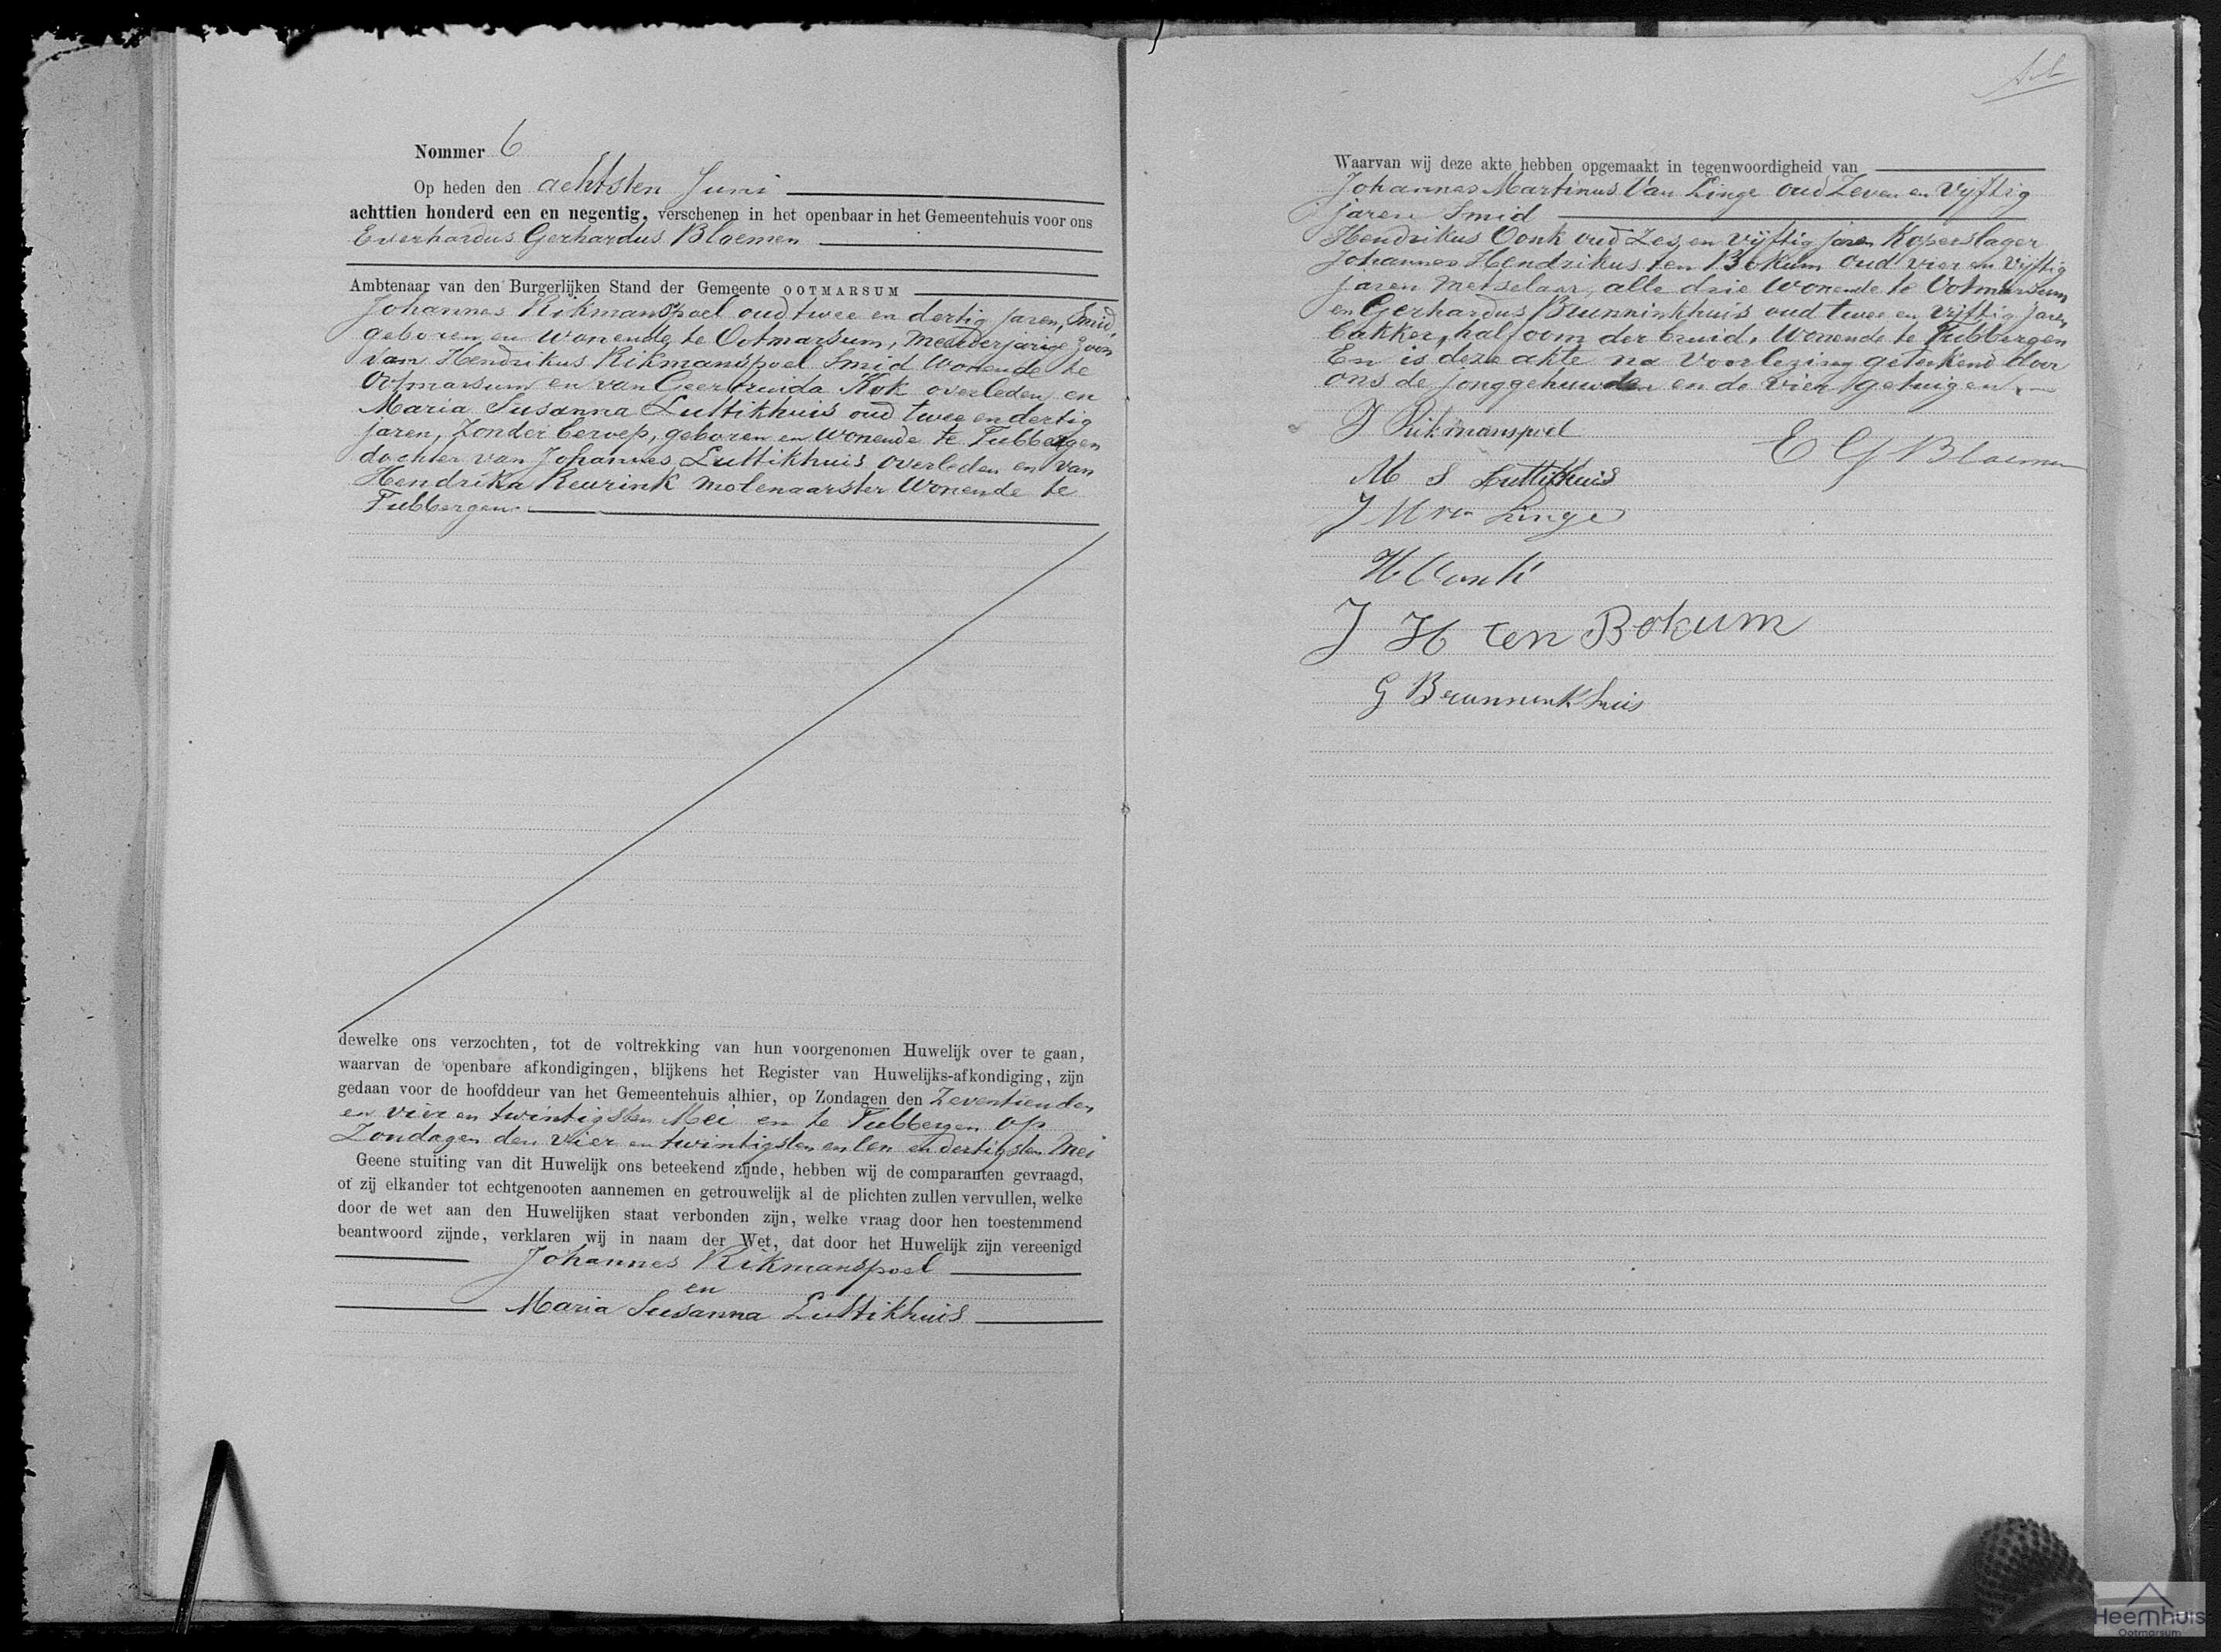 Nommer 6
Op heden den achtsten Juni
achttien honderd een en negentig, verschenen in het openbaar in het Gemeentehuis voor ons
Everhardus Gerhardus Bloemen
Ambtenaar van den Burgerlijken Stand der Gemeente OOTMARSUM
Johannes Rikmanspoel oud twee en dertig jaren, Smid,
geboren en wonende te Ootmarsum, meerderjarige zoon
van Hendrikus Rikmanspoel Smid Wonende te
Ootmarsum en van Geertruida Kok overleden en
Maria Susanna Luttikhuis oud twee en dertig
jaren, Zonder beroep, geboren en Wonende te Tubbergen
dochter van Johannes Luttikhuis overleden en van
Hendrika Reurink molenaarster Wonende te
Tubbergen.
dewelke ons verzochten, tot de voltrekking van hun voorgenomen Huwelijk over te gaan,
waarvan de openbare afkondigingen, blijkens het Register van Huwelijks-afkondiging, zijn
gedaan voor de hoofddeur van het Gemeentehuis alhier, op Zondagen den Zeventienden
en vier en twintigsten Mei en te Tubbergen op
Zondagen den vier en twintigsten en een en dertigsten Mei
Geene stuiting van dit Huwelijk ons beteekend zijnde, hebben wij de comparanten gevraagd,
of zij elkander tot echtgenooten aannemen en getrouwelijk al de plichten zullen vervullen, welke
door de wet aan den Huwelijken staat verbonden zijn, welke vraag door hen toestemmend
beantwoord zijnde, verklaren wij in naam der Wet, dat door het Huwelijk zijn vereenigd
Johannes Rikmanspoel
en
Maria Susanna Luttikhuis
Waarvan wij deze akte hebben opgemaakt in tegenwoordigheid van
Johannes Martinus Van Linge oud Zeven en Vijftig
jaren Smid
Hendrikus Oonk oud Zes en vijftig jaren Koperslager
Johannes Hendrikus ten Bokum oud vier en Vijftig
jaren metselaar, alle drie Wonende te Ootmarsum
en Gerhardus Brunninkhuis oud twee en vijftig jaren
bakker, half oom der bruid, Wonende te Tubbergen
En is deze akte na voorlezing geteekend door
ons de jonggehuwden en de vier getuigen.
J Rikmanspoel
E G Bloemen
M S Luttikhuis
J M van Linge
H Oonk
J H ten Bokum
G Brunninkhuis
Heemhuis
Ootmarsum